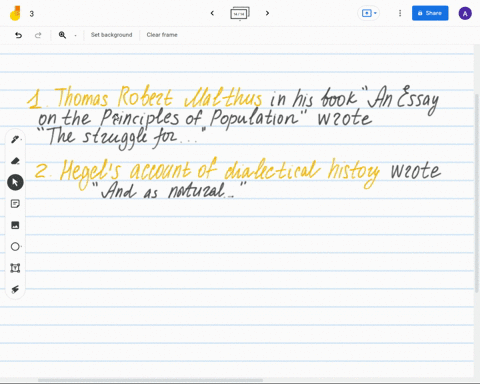 3
14 / 14
Share
A
Set background
Clear frame
1. Thomas Robert Malthus in his book "An Essay
on the Principles of Population" wrote
"The struggle for..."
2. Hegel's account of dialectical history wrote
"And as natural..."